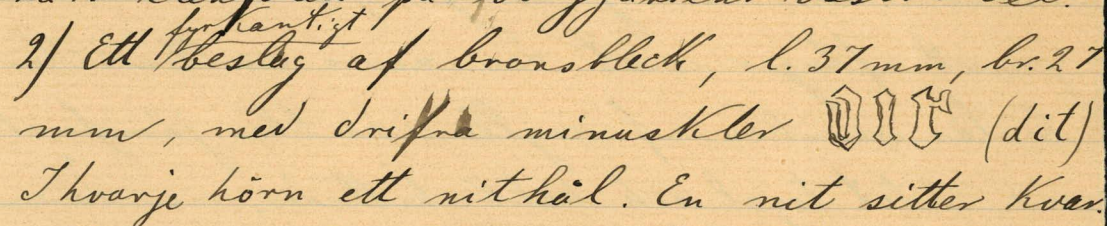 fyrkantigt
2) Ett beslag af bronsbleck, l. 37 mm, br. 27
mm, med drifna minuskler dit (dit)
I hvarje hörn ett nithål. En nit sitter kvar.